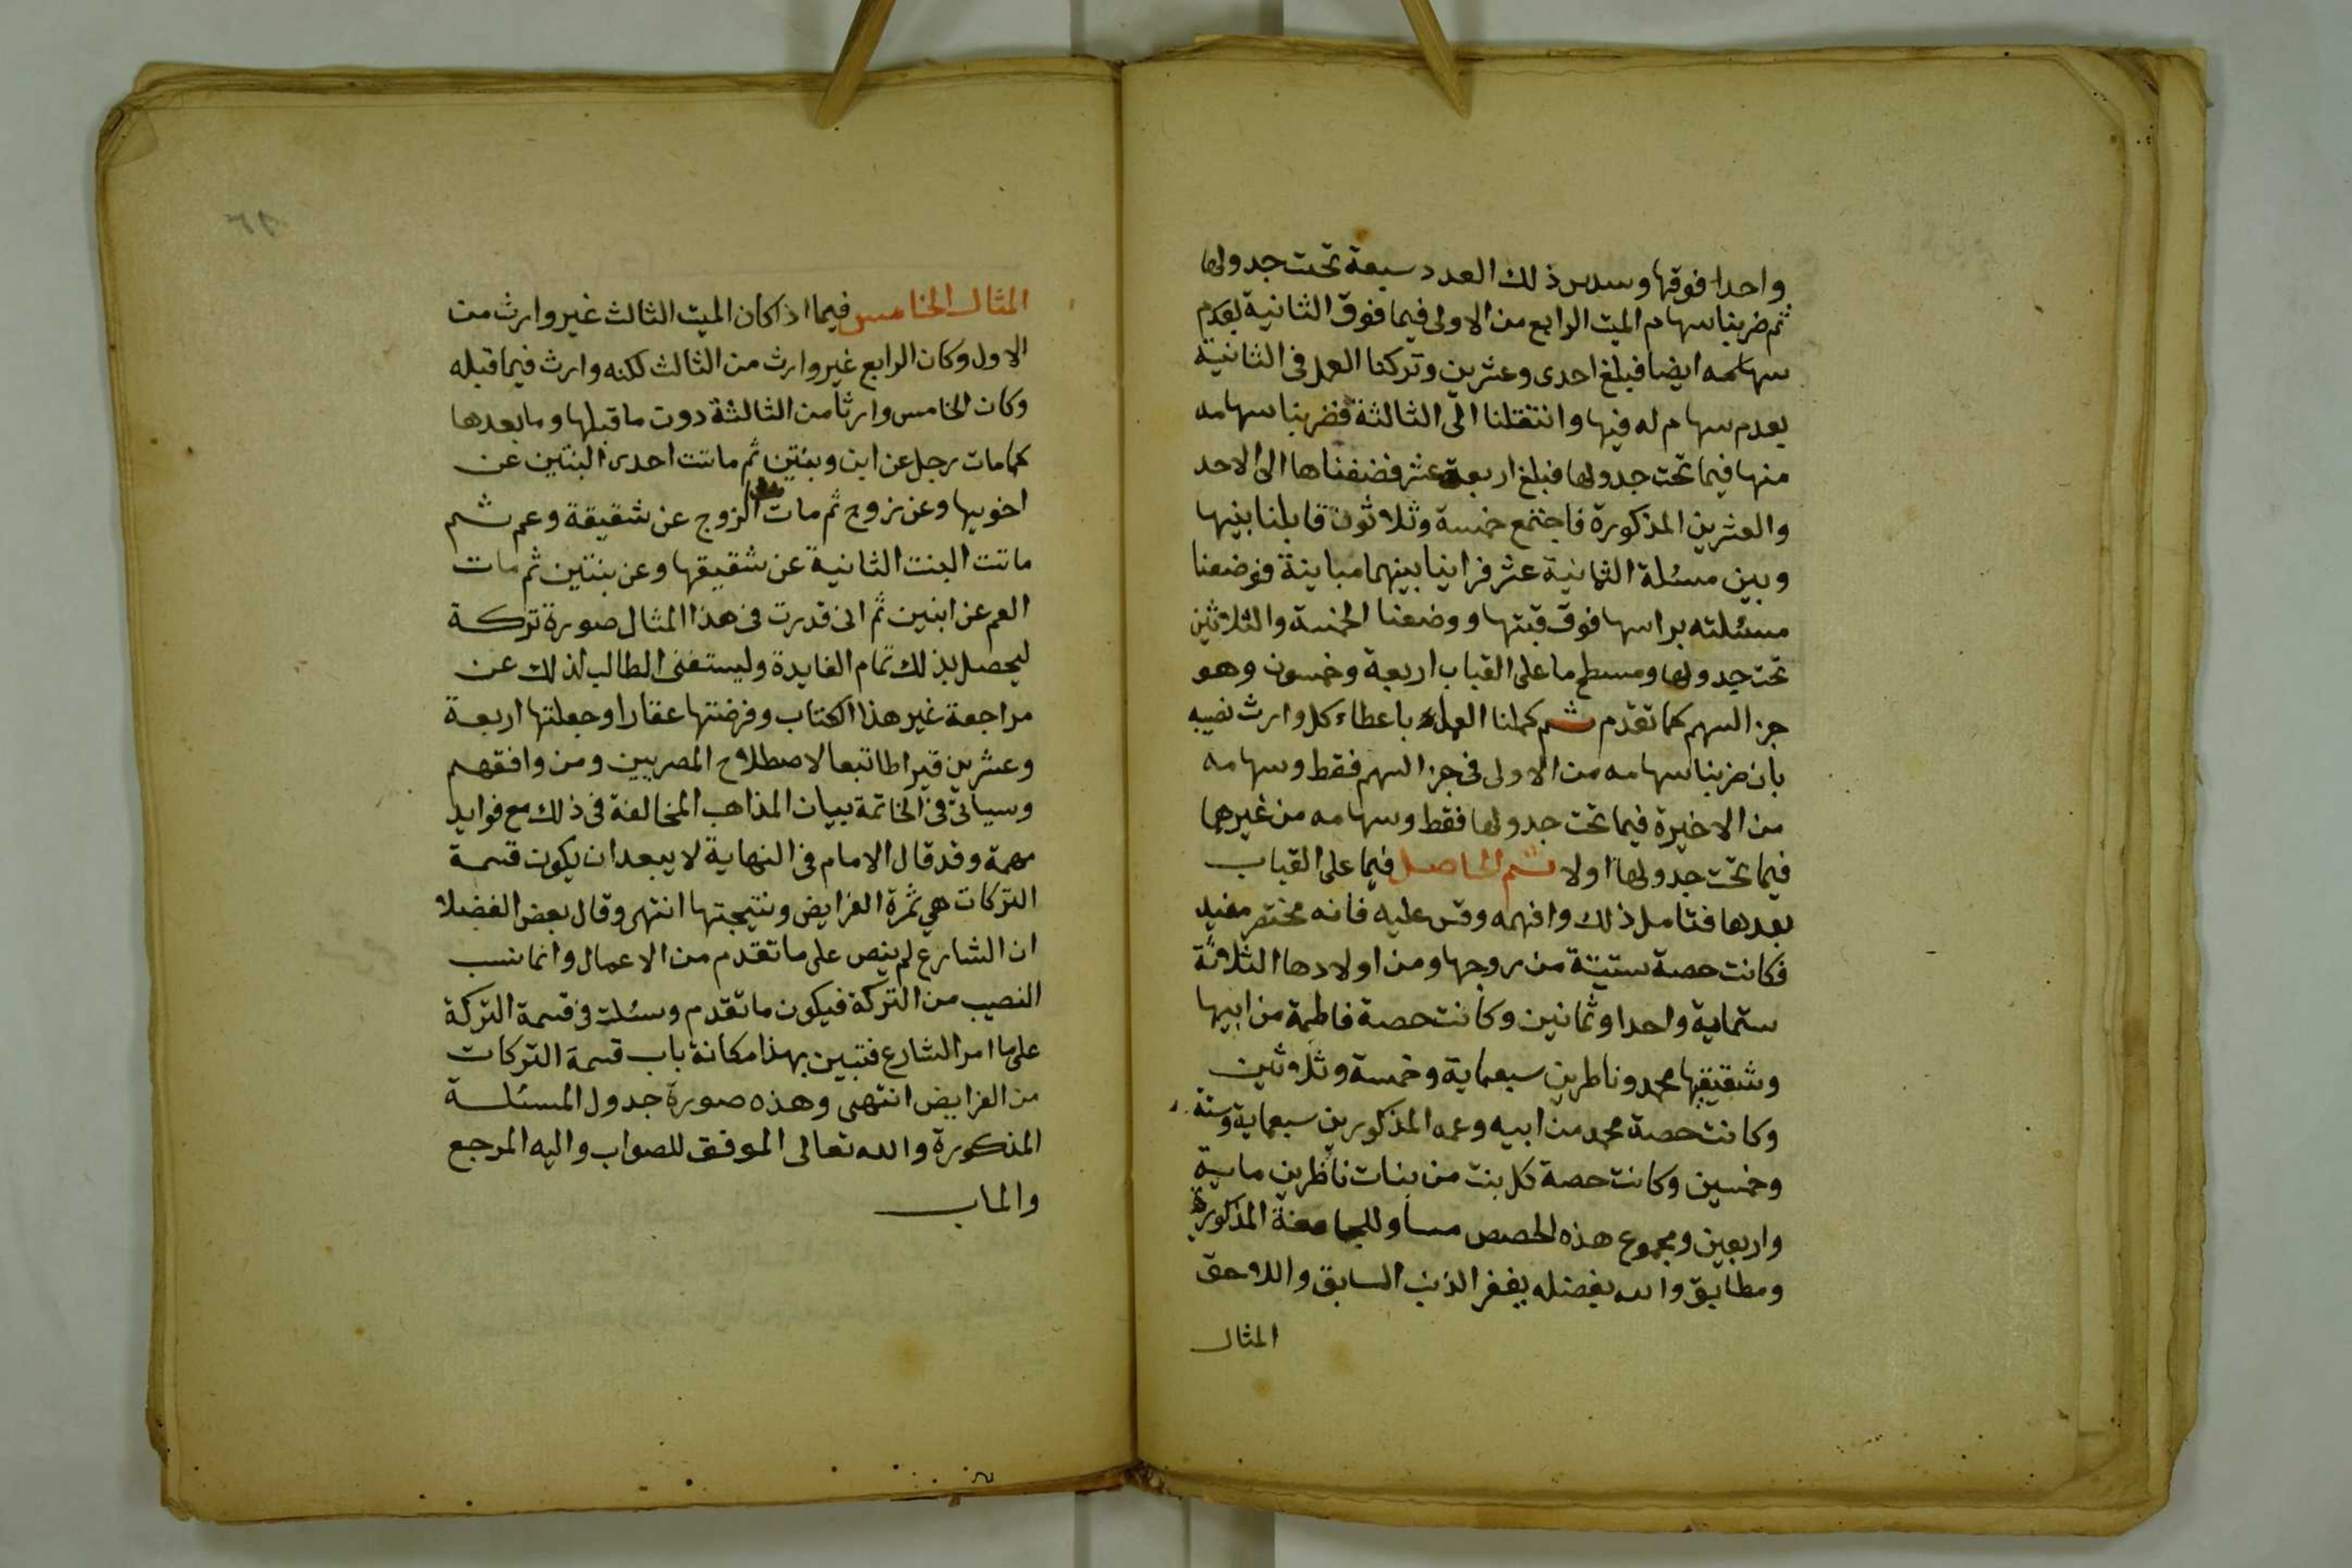 واحدا فوقها وسدس ذلك العدد سبعة تحت جدولها
ثم ضربنا سهام الميت الرابع من الاولى فيما فوق الثانية لعدم
سهامه ايضا فبلغ احدى وعشرين وتركنا العمل فى الثانية
بعدم سهام له فيها وانتقلنا الى الثالثة فضربنا سهامه
منها فيما تحت جدولها فبلغ اربعة عشر فضفناها الى الاحد
والعشرين المذكورة فاجتمع خمسة وثلاثون قابلنا بينها
وبين مسئلة الثمانية عشر فراينا بينهما مباينة فوضعنا
مسئلته براسها فوق قبتها ووضعنا الخمسة والثلاثين
تحت جدولها ومسطح ما على القباب اربعة وخمسون وهو
جزء السهم كما تقدم ثم كملنا العمل باعطاء كل وارث نصيبه
بان ضربنا سهامه من الاولى فى جزء السهم فقط وسهامه
من الاخيرة فيما تحت جدولها فقط وسهامه من غيرها
فيما تحت جدولها اولا ثم الحاصل فيما على القباب
بعدها فتامل ذلك وافهمه وقس عليه فانه مختصر مفيد
فكانت حصة ستيتة من زوجها ومن اولادها الثلاثة
ستماية واحدا وثمانين وكانت حصة فاطمة من ابيها
وشقيقها محمد وناطرين سبعماية وخمسة وثلاثين
وكانت حصة محمد من ابيه وعمه المذكورين سبعماية وستة
وخمسين وكانت حصة كل بنت من بنات ناظرين ماية
واربعين ومجموع هذه الحصص مساو للجامعة المذكورة
ومطابق والله بفضله يغفر الذنب السابق واللاحق
المثال
المثال الخامس فيما اذا كان الميت الثالث غير وارث من
الاول وكان الرابع غير وارث من الثالث لكنه وارث فيما قبله
وكان الخامس وارثا من الثالثة دون ما قبلها وما بعدها
كما مات رجل عن ابن وبنتين ثم ماتت احدى البنتين عن
اخويها وعن زوج ثم مات الزوج عن شقيقة وعم ثم
ماتت البنت الثانية عن شقيقها وعن بنتين ثم مات
العم عن ابنين ثم انى قدرت فى هذا المثال صورة تركة
ليحصل بذلك تمام الفايدة وليستغنى الطالب لذلك عن
مراجعة غير هذا الكتاب وفرضتها عقارا وجعلتها اربعة
وعشرين قيراطا تبعا لاصطلاح المصريين ومن وافقهم
وسياتى فى الخاتمة بيان المذاهب المخالفة فى ذلك مع فوايد
مهمة وقد قال الامام فى النهاية لا يبعد ان يكون قسمة
التركات هي ثمرة الفرايض ونتيجتها انتهى وقال بعض الفضلا
ان الشارع لم ينص على ما تقدم من الاعمال وانما نسب
النصيب من التركة فيكون ما تقدم وسئلت فى قسمة التركة
على ما امر الشارع فتبين بهذا مكانة باب قسمة التركات
من الفرايض انتهى وهذه صورة جدول المسئلة
المذكورة والله تعالى الموفق للصواب واليه المرجع
والماب